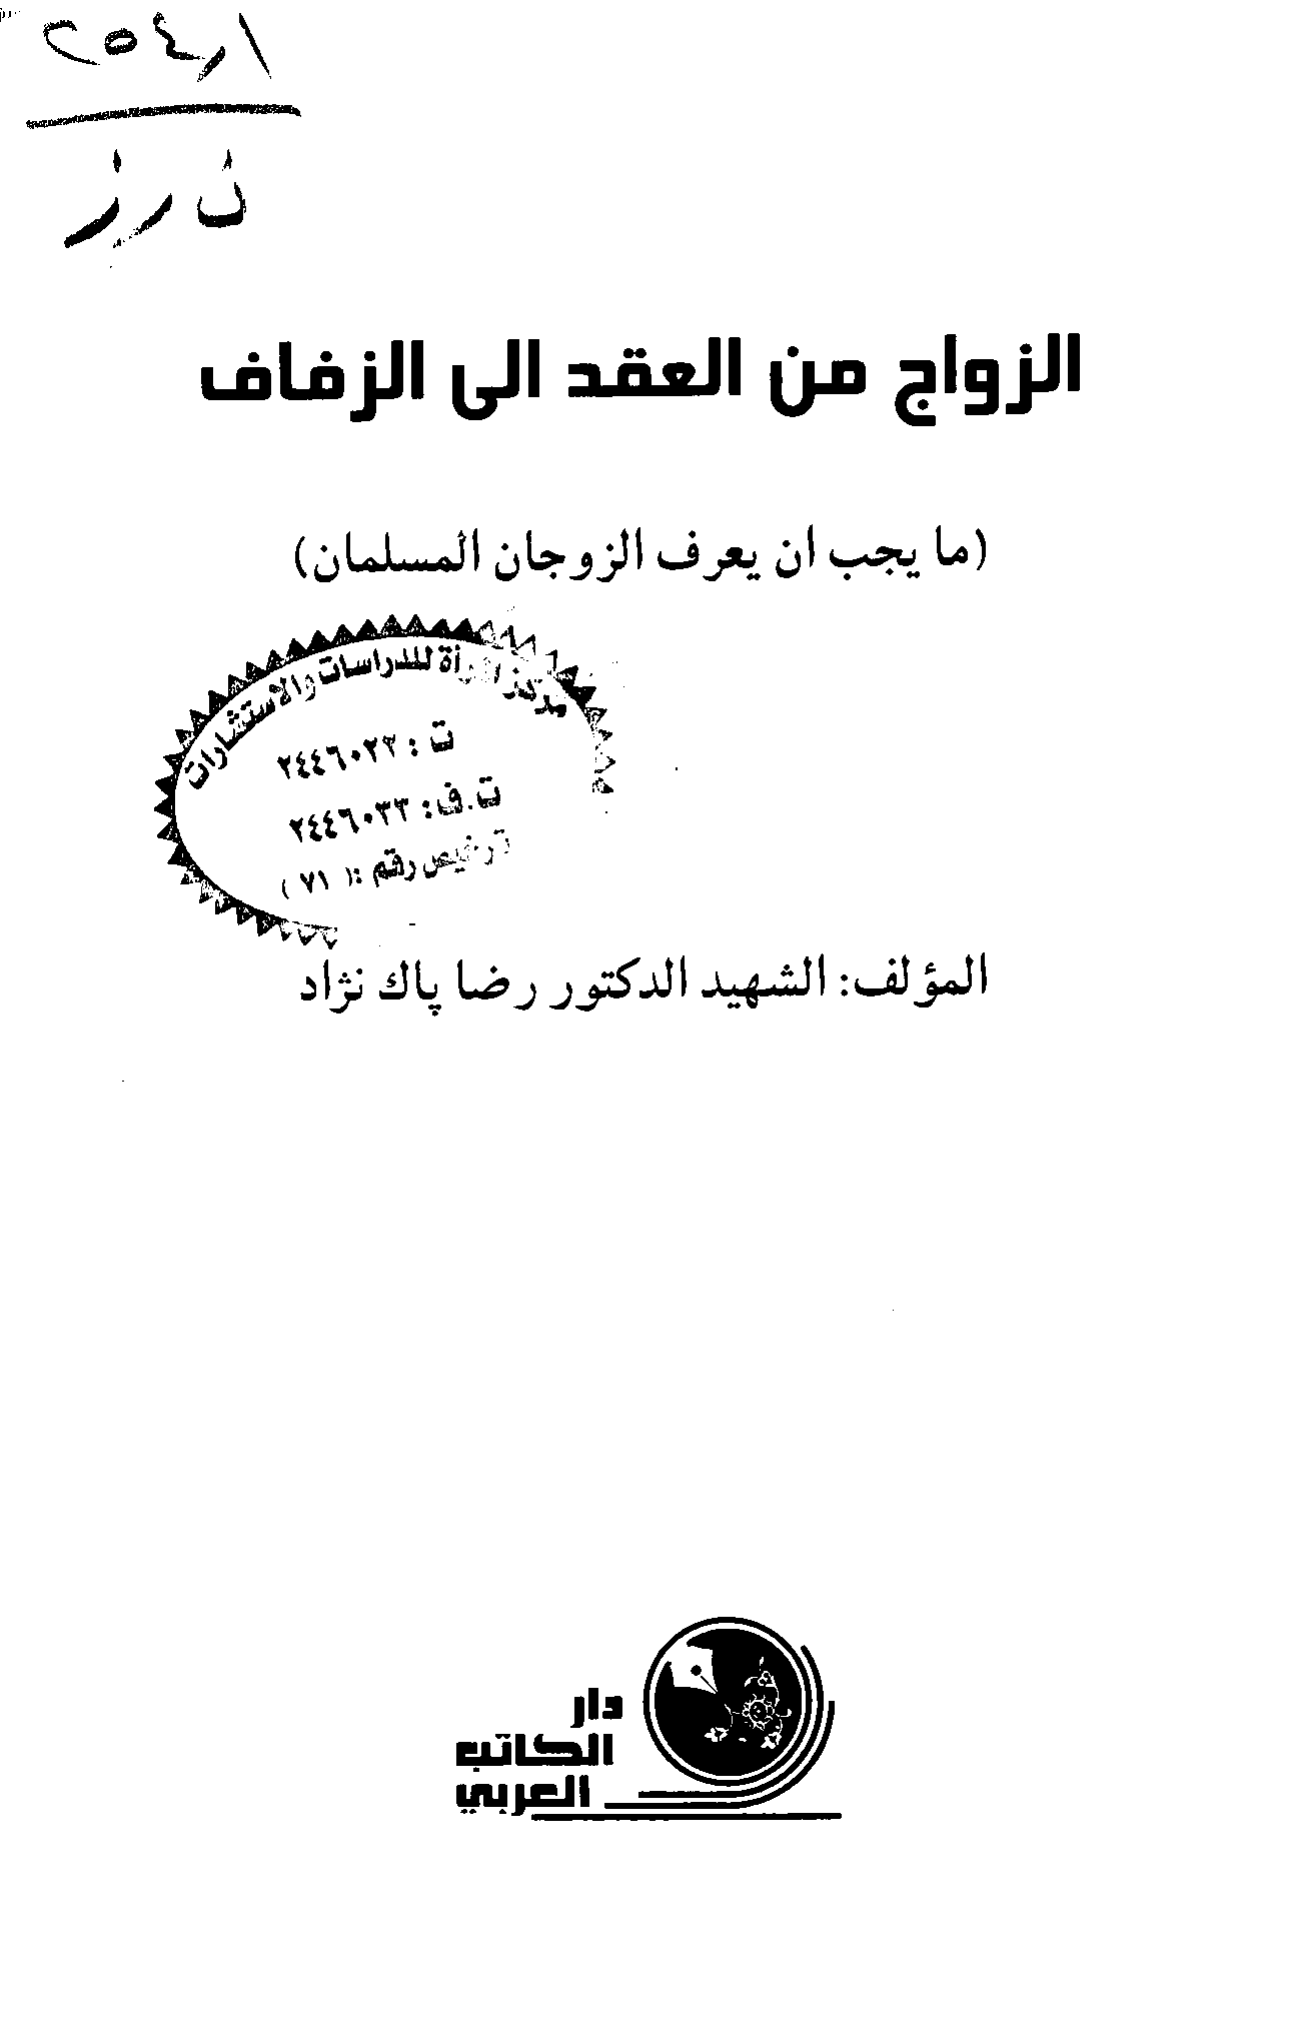 ٢٥٤٫١
ن ر ز
الزواج من العقد الى الزفاف
(ما يجب ان يعرف الزوجان المسلمان)
مركز المرأة للدراسات والاستشارات
ت : ٢٤٤٦٠٢٢
ت.ف: ٢٤٤٦٠٣٣
ترخيص رقم :( ٧١ )
المؤلف: الشهيد الدكتور رضا پاك نژاد
دار
الكاتب
العربي